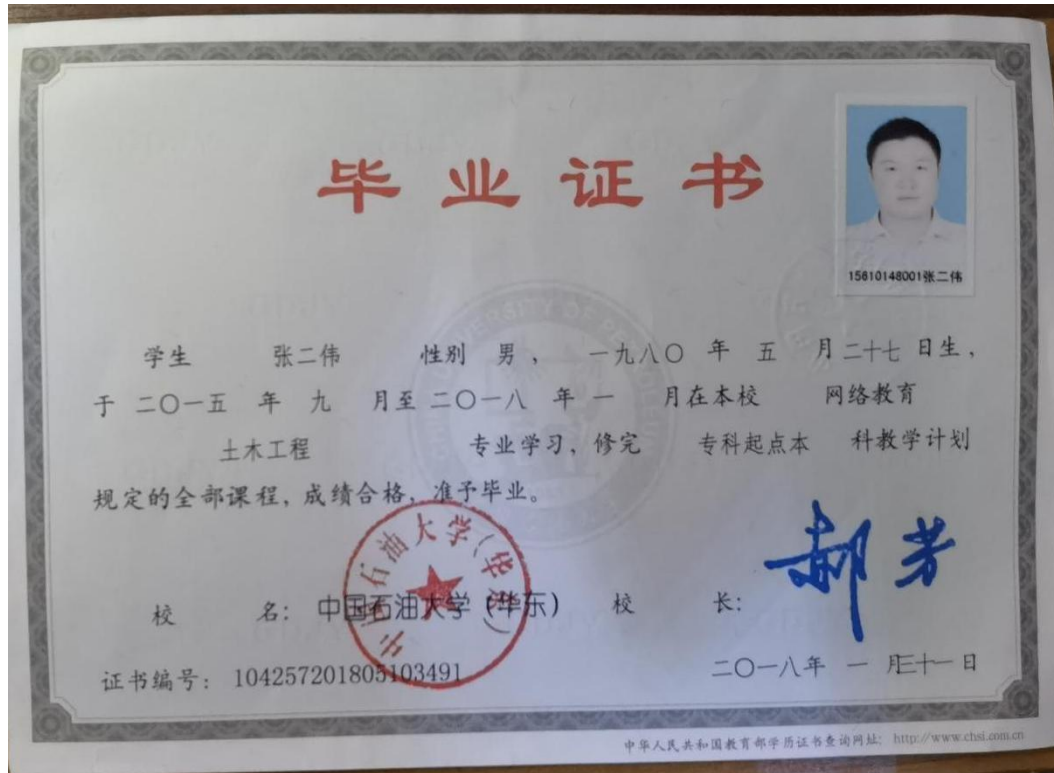 毕业证书
15610148001张二伟
学生 张二伟 性别 男， 一九八〇 年 五 月二十七 日生，
于 二〇一五 年 九 月至 二〇一八 年 一 月在本校 网络教育
土木工程 专业学习，修完 专科起点本 科教学计划
规定的全部课程，成绩合格，准予毕业。
校 名： 中国石油大学（华东） 校 长： 郝芳
中国石油大学（华东）
证书编号： 104257201805103491 二〇一八年 一 月三十一 日
中华人民共和国教育部学历证书查询网址： http://www.chsi.com.cn